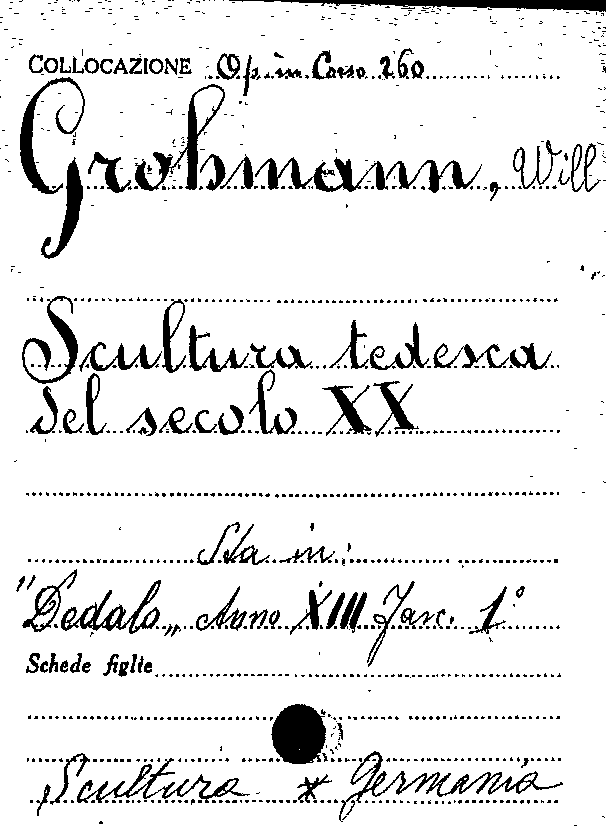 COLLOCAZIONE Op. in Corso 260
Grohmann, Will
Scultura tedesca
del secolo XX
Sta in:
"Dedalo„ Anno XIII Fasc. 1°
Schede figlie
Scultura * Germania